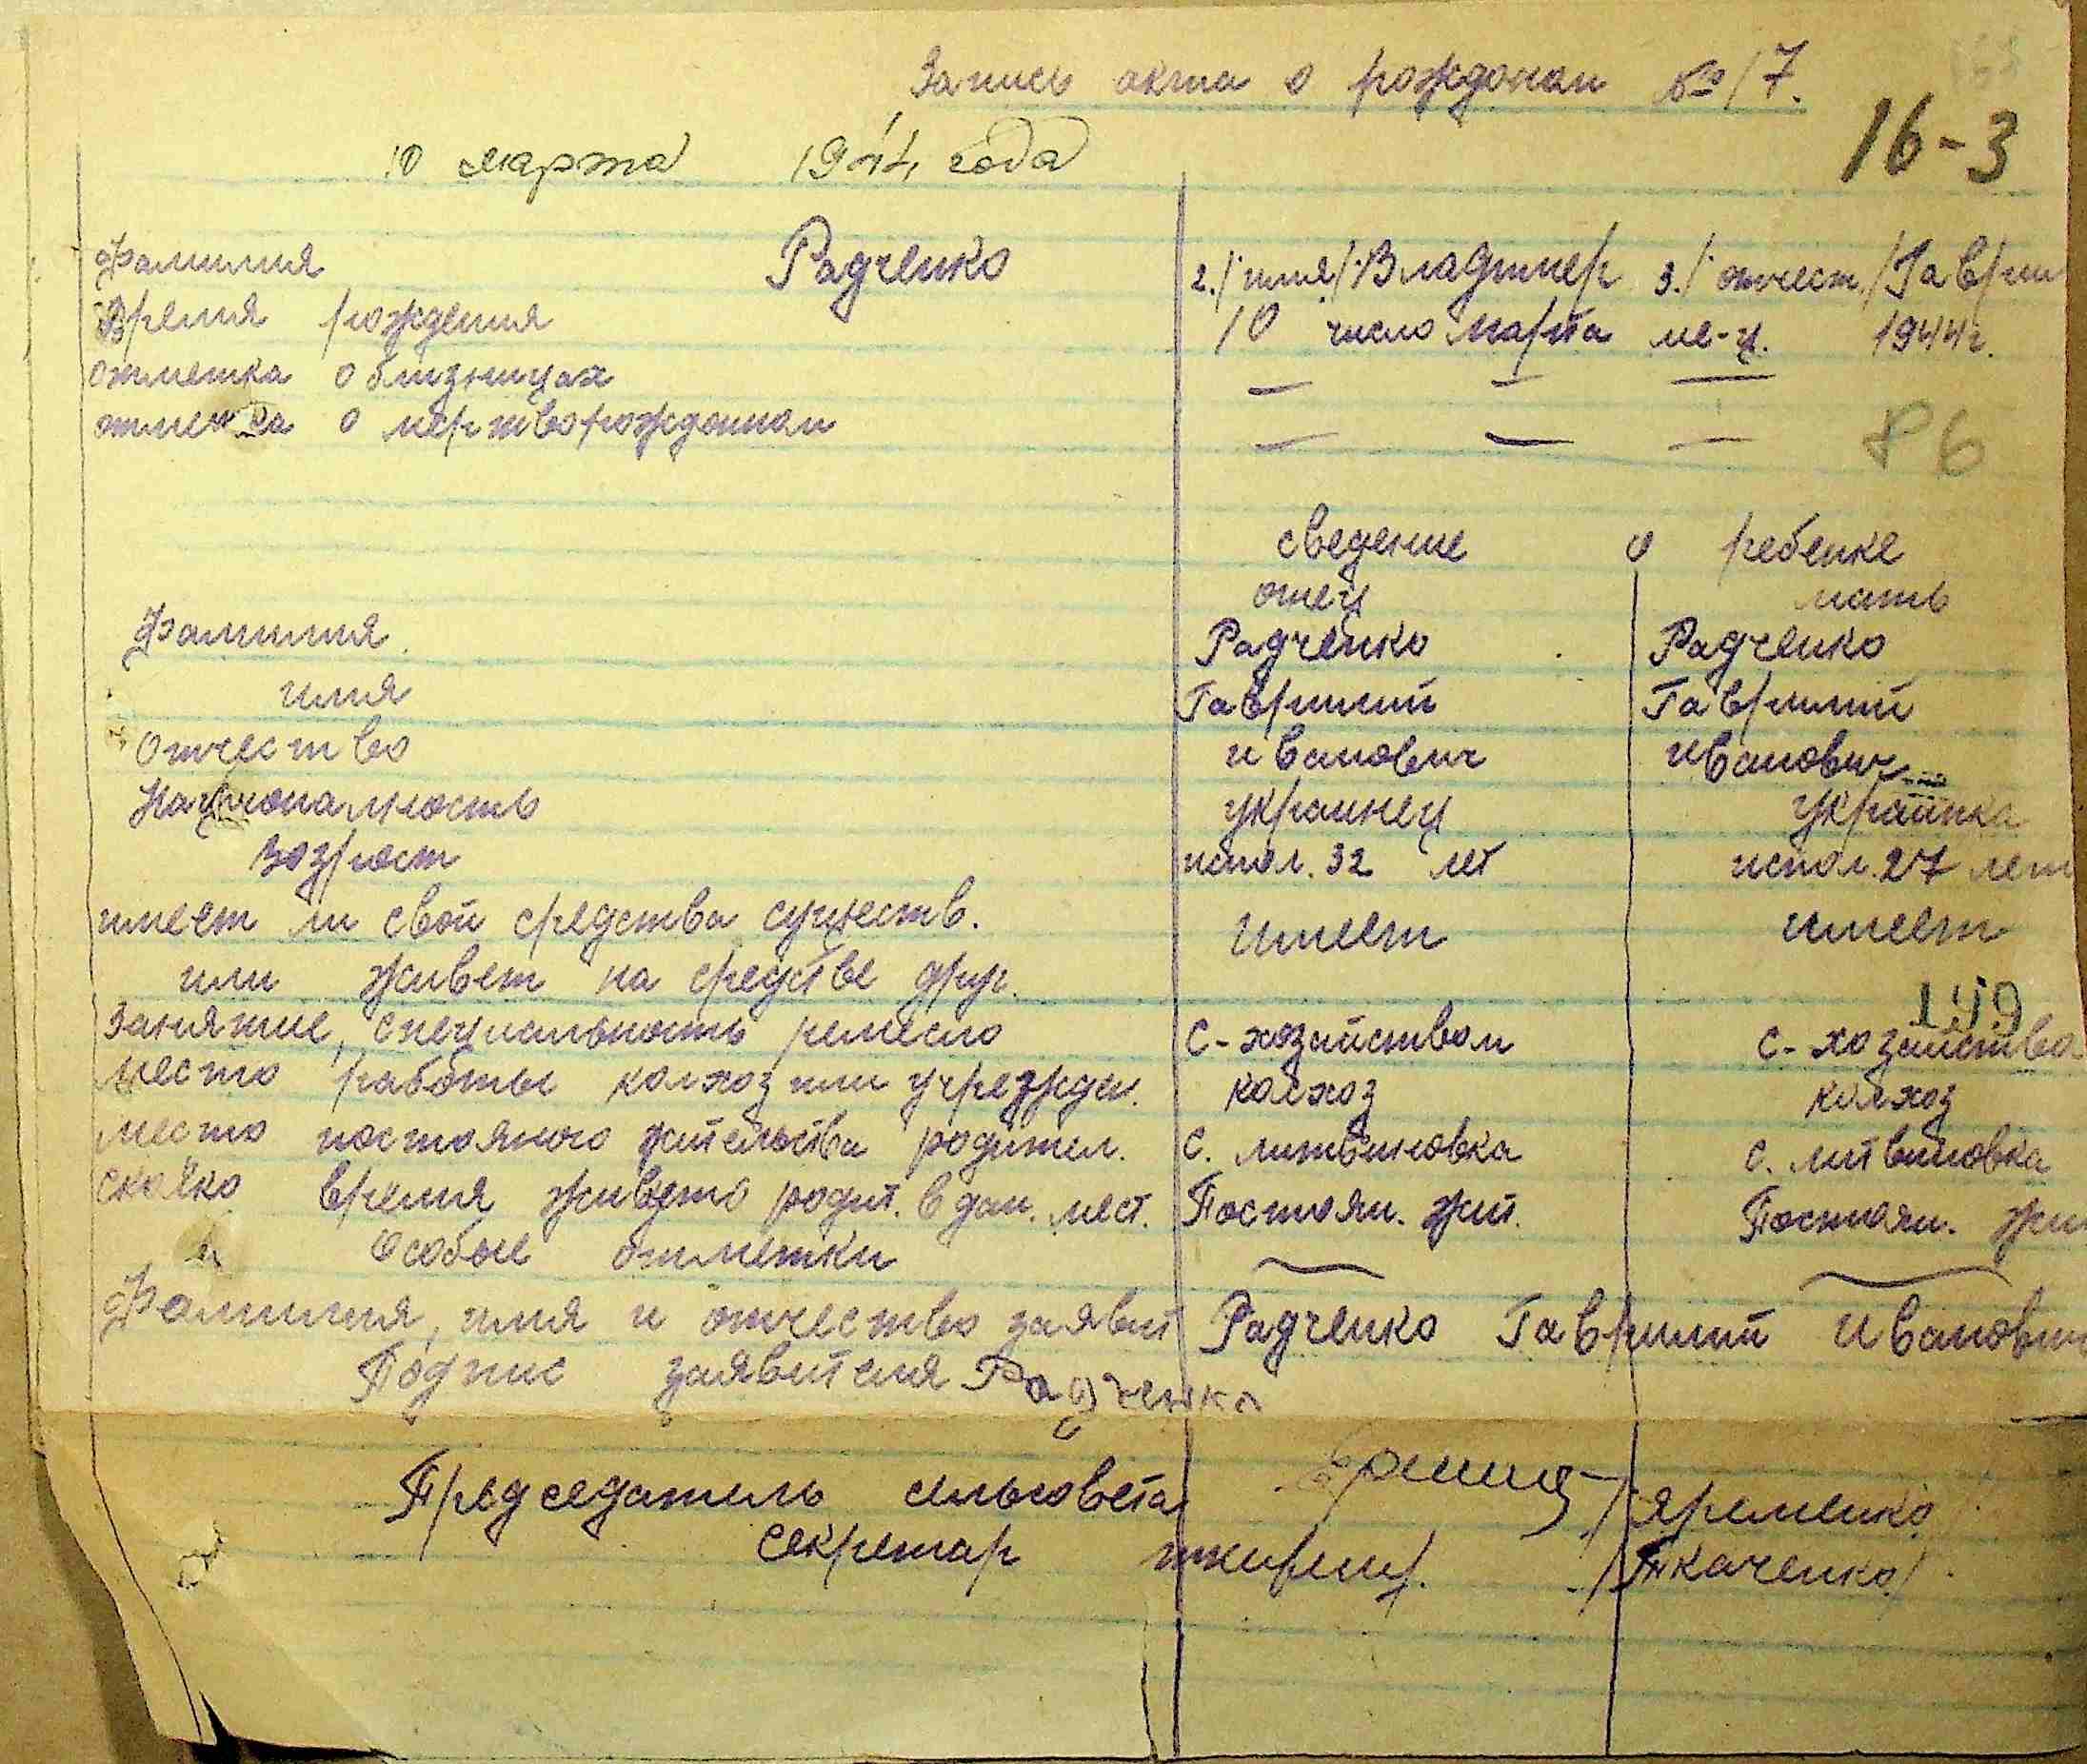 Запись акта о рождении № 17.
16-3
10 марта 1944 года
Фамилия Радченко 2./ имя/ Владимер 3./ отчест./ Гаврии
Время рождения 10 число марта ме-ц. 1944г.
отметка о близницах — — —
отметка о мертворожденнои — — —
86
сведение о ребенке
отец мать
Фамилия Радченко Радченко
имя Гаврилий Гаврилий
Отчество иванович иванович
Национальность украинец украинка
Возраст испол. 32 лет испол. 27 лет
имеет ли свои средства существ. имеет имеет
или живет на средстве друг.
149
Занятие, специальность ремесло с-хозяйством с-хозяйства
место работы колхоз или учрежден. колхоз колхоз
место постояного жительства родител. с. литвиновка с. литвиновка
сколко время живето родит. в дан. мест. Постоян. жит. Постоян. жи
Особые отметки
Фамилия, имя и отчество заявит Радченко Гаврилий Иванович
Подпис заявителя Радченко
Председатель сельсовета /яременко/
секретар /Ткаченко/